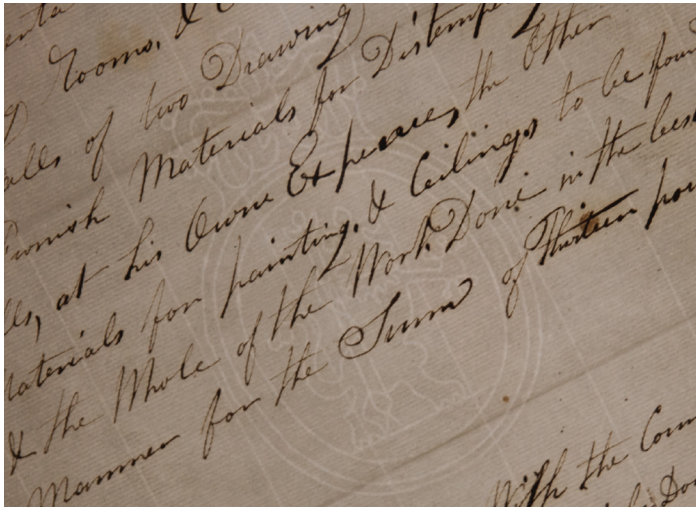 Rooms, &
alls of two Drawing
Furnish Materials for Distempe
lls, at his Owne Expences, the Other
Materials for painting, & Ceilings to be foun
& the Whole of the Work Done in the best
Manner for the Sum of Thirteen pou
With the Com